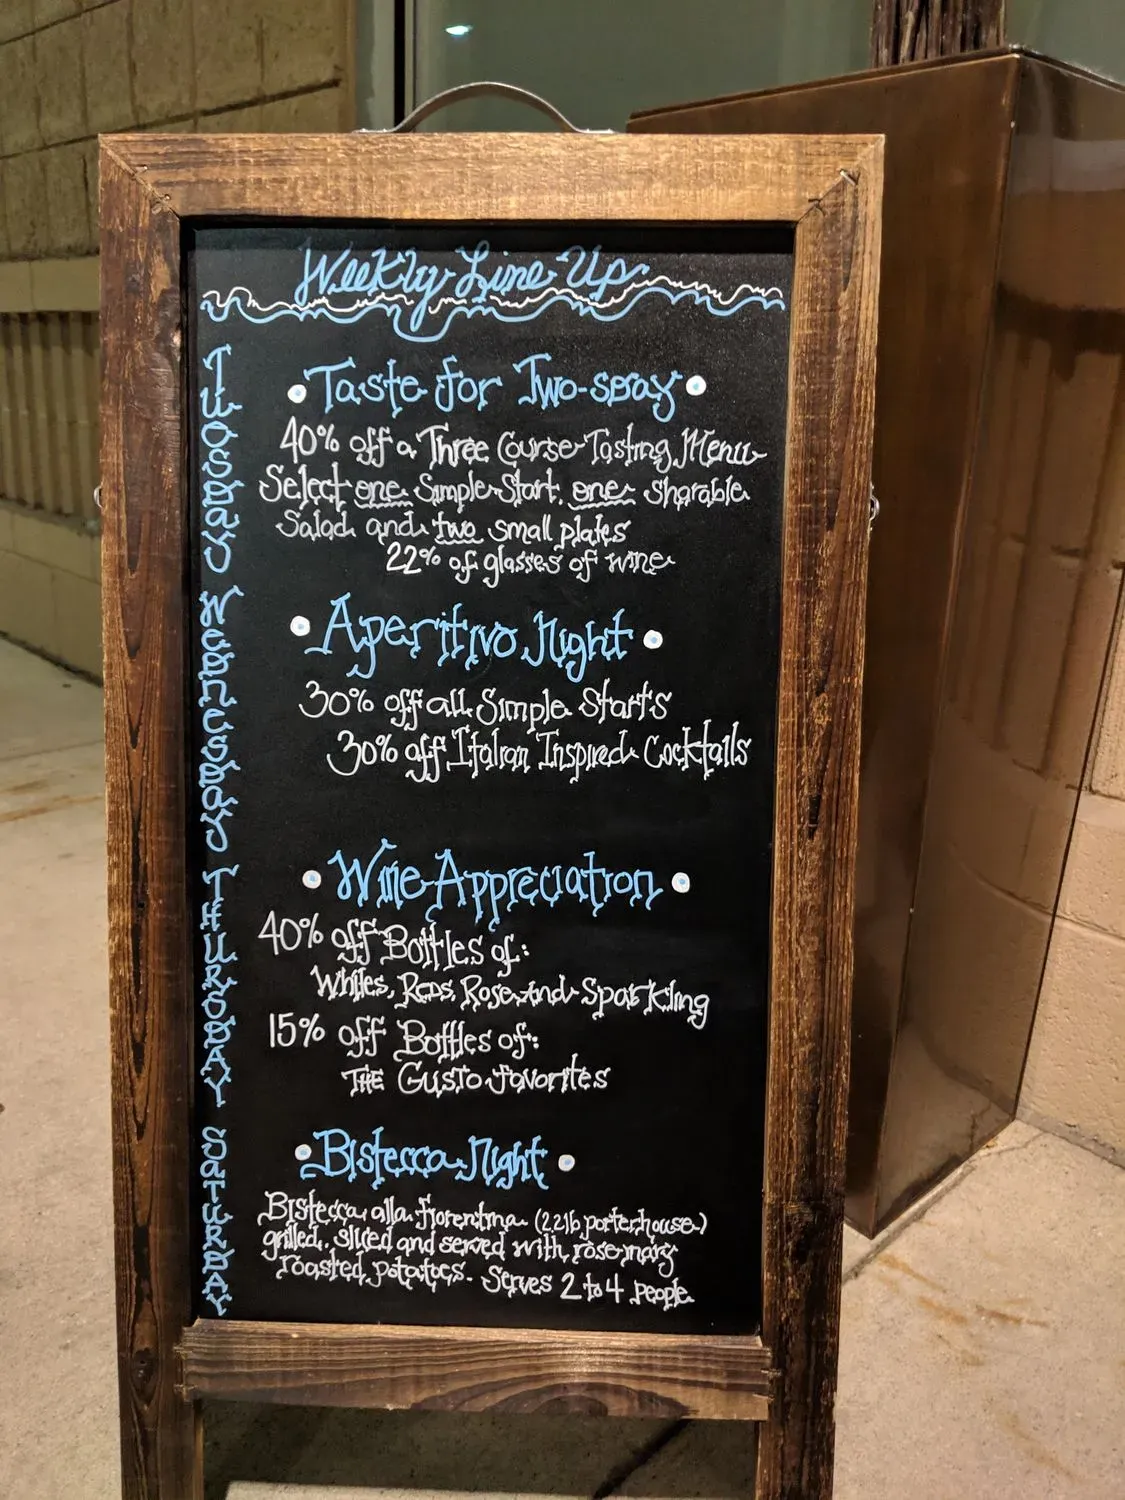 Weekly Line Up
Tuesday
Taste for Two-sday
40% off a Three Course Tasting Menu
Select one Simple Start, one sharable
Salad and two small plates
22% of glasses of wine
Wednesday
Aperitivo Night
30% off all Simple Starts
30% off Italian Inspired Cocktails
Thursday
Wine Appreciation
40% off Bottles of:
Whites, Reds, Rose and Sparkling
15% off Bottles of:
THE Gusto favorites
Saturday
Bistecca Night
Bistecca alla fiorentina (2.2lb porterhouse)
grilled, sliced and served with rosemary
roasted potatoes. Serves 2 to 4 people